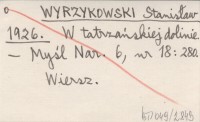 WYRZYKOWSKI Stanisław
1926. W tatrzańskiej dolinie
– Myśl Nar. 6, nr 18: 280.
Wiersz.